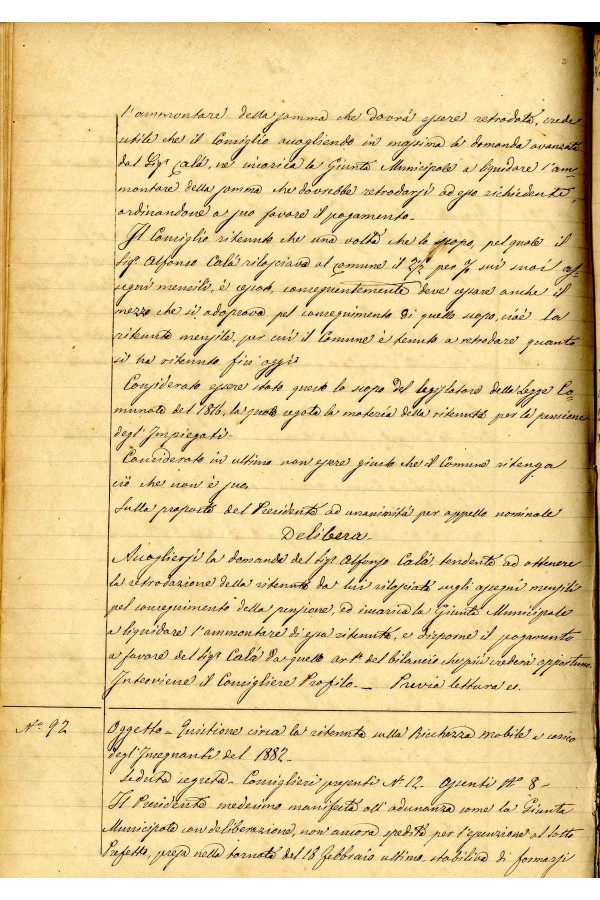 l'ammontare della somma che dovrà essere retrodata, crede
utile che il Consiglio accogliendo in massima la domanda avanzata
dal Sigr Calà, ne incarica la Giunta Municipale a liquidare l'am-
montare della somma che dovrebbe retrodarsi ad esso richiedente,
ordinandone a suo favore il pagamento.
Il Consiglio ritenuto che una volta che lo scopo, pel quale il
Sigr Alfonso Calà rilasciava al Comune il 2½ per % sui suoi as-
segni mensili, è cessato, conseguentemente deve cessare anche il
mezzo che si adoprava pel conseguimento di quello scopo, cioè la
ritenuta mensile, per cui il Comune è tenuto a retrodare quanto
si ha ritenuto fin oggi.
Considerato essere stato questo lo scopo del legislatore della legge Co-
munale del 1816, la quale regola la materia della ritenuta per la pensione
degl'Impiegati.
Considerato in ultimo non essere giusto che il Comune ritenga
ciò che non è suo.
Sulla proposta del Presidente ad unanimità per appello nominale
Delibera
Accogliersi la domanda del Sigr Alfonso Calà, tendente ad ottenere
la retrodazione della ritenuta da lui rilasciata sugli assegni mensili
pel conseguimento della pensione, ed incarica la Giunta Municipale
a liquidare l'ammontare di essa ritenuta, e disporne il pagamento
a favore del Sigr Calà da quello arto del bilancio che più crederà opportuno.
Interviene il Consigliere Profilo. — Previa lettura es.
No 92
Oggetto - Quistione circa la ritenuta sulla Ricchezza mobile a carico
degl'Insegnanti del 1882.-
Seduta segreta - Consiglieri presenti No 12 - Assenti No 8 -
Il Presidente medesimo manifesta all'adunanza come la Giunta
Municipale con deliberazione, non ancora spedita per l'esecuzione al Sotto
Prefetto, presa nella tornata del 18 febbraio ultimo, stabiliva di formarsi